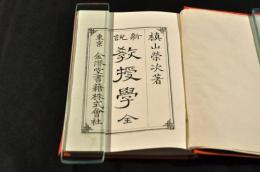 槇山榮次著
新說
教授學 全
東京 金港堂書籍株式會社